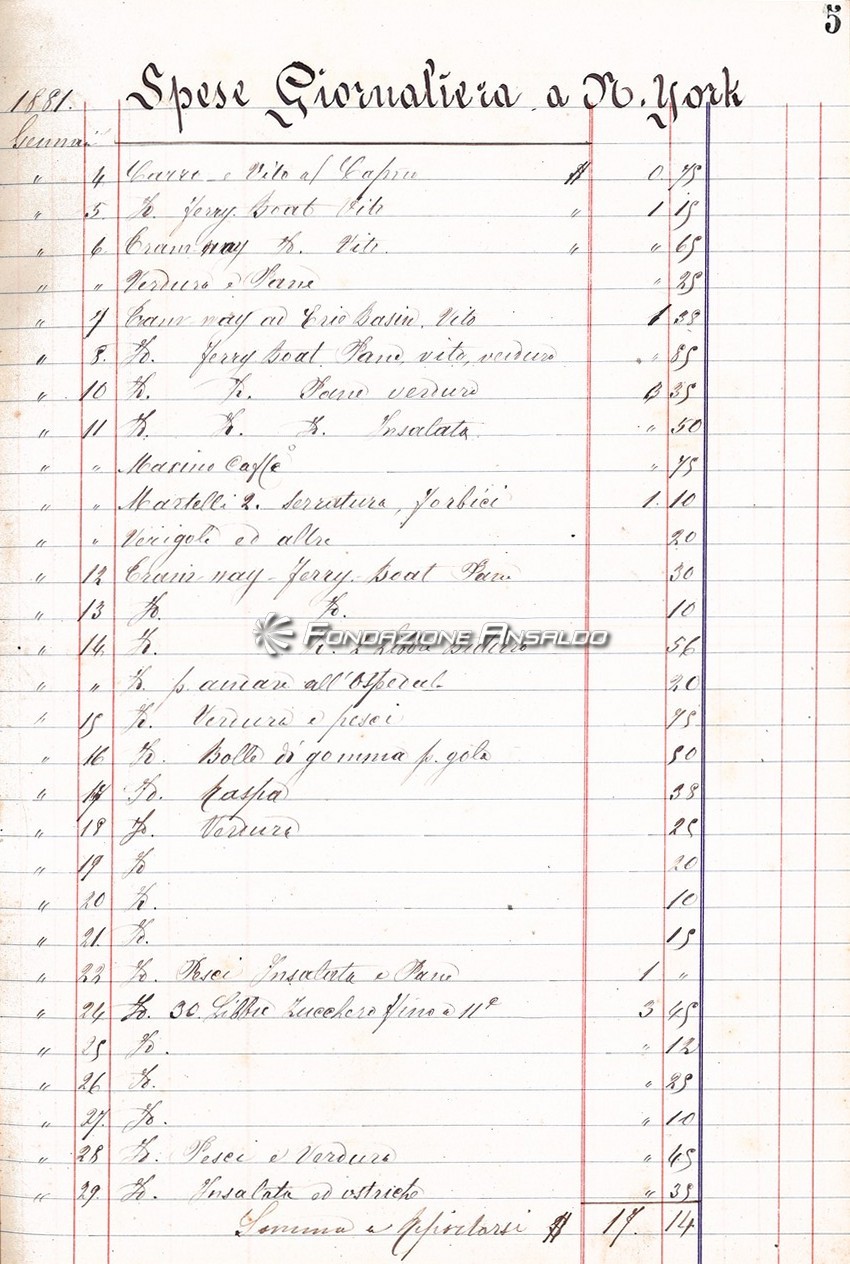 5
Spese Giornaliera a N. York
1881.
Gennaio
" 4 Carro e Vito al Capne $ 0 75
" 5 Do. Ferry Boat Vito " 1 15
" 6 Tram-way Do. Vito " " 65
" " Verdura e Pane " 25
" 7 Tram-way ad Erie Basin. Vito 1 38
" 8. Do. Ferry Boat. Pane, vito, verdura " 85
" 10 Do. Do. Pane verdura 35
" 11 Do. Do. Do. Insalata " 50
" " Macino Caffè " 75
" " Martelli 2. Serratura, Forbici 1. 10
" " Verigole ed altre 20
" 12 Tram-way - Ferry-Boat Pane 30
" 13 Do. Do. 10
FONDAZIONE ANSALDO
" 14 Do. 56
" " Do. p. andare all'Ospedal 20
" 15 Do. Verdura e pesci 75
" 16 Do. Bolle di gomma p. gola 50
" 17 Do. Raspa 38
" 18 Do. Verdura 25
" 19 Do 20
" 20 Do. 10
" 21. Do. 15
" 22 Do. Pesci Insalata e Pane 1 "
" 24 Do. 30 Libbre Zucchero fino a 11c 3 45
" 25 Do. " 12
" 26 Do. " 25
" 27. Do. " 10
" 28 Do. Pesci e Verdura " 45
" 29 Do. Insalata ed ostriche " 35
Somma a Riportarsi $ 17. 14